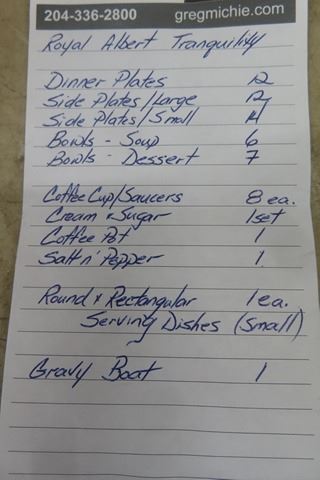 204-336-2800 gregmichie.com
Royal Albert Tranquility
Dinner Plates 12
Side Plates/Large 12
Side Plates/Small
Bowls - Soup 6
Bowls - Dessert 7
Coffee Cup/Saucers 8 ea.
Cream & Sugar 1 set
Coffee Pot 1
Salt n' Pepper 1
Round & Rectangular 1 ea.
Serving Dishes (Small)
Gravy Boat 1